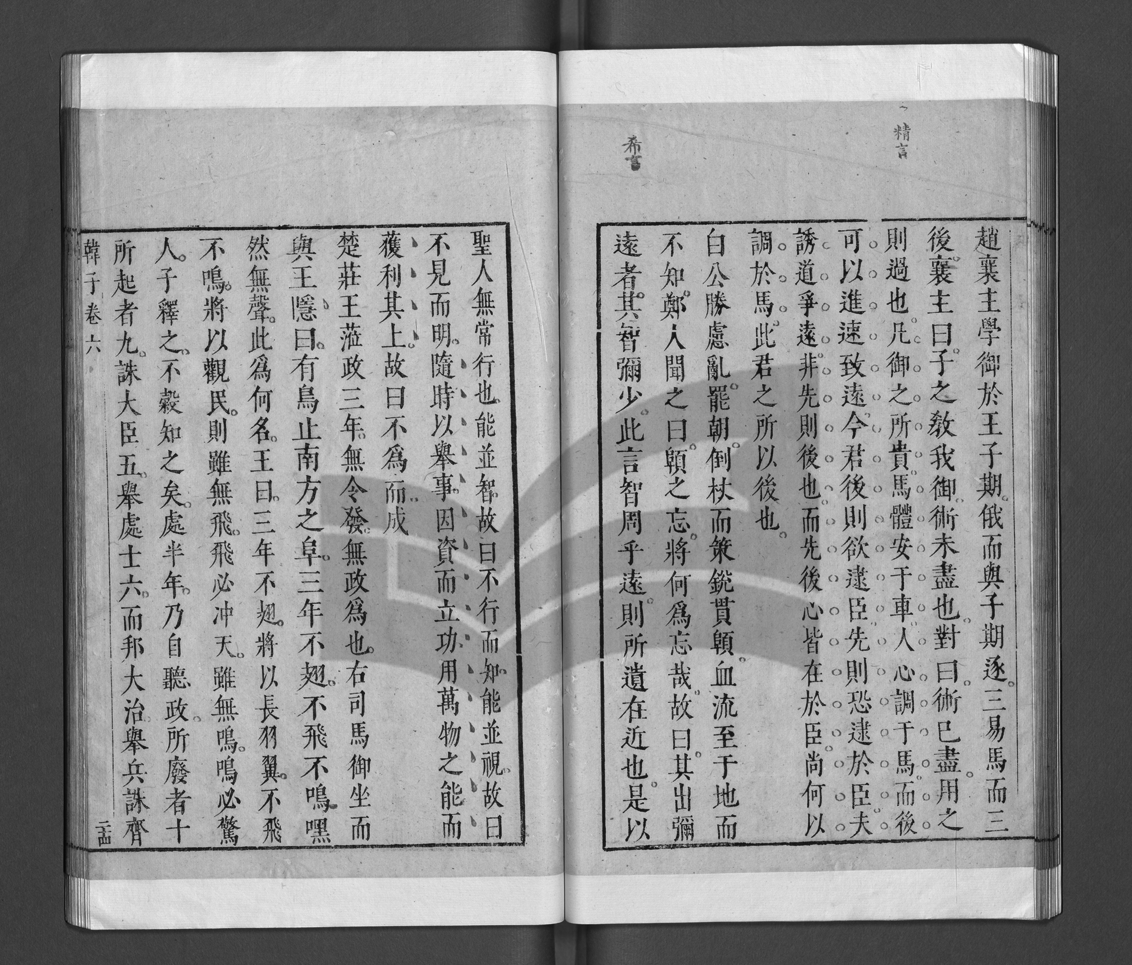 精言
希言
趙襄主學御於王子期。俄而與子期逐。三易馬而三
後。襄主曰。子之敎我御。術未盡也。對曰。術已盡。用之
則過也。凡御之所貴。馬體安于車。人心調于馬。而後
可以進速致遠。今君後則欲逮臣。先則恐逮於臣。夫
誘道爭遠。非先則後也。而先後心皆在於臣。尚何以
調於馬。此君之所以後也。
白公勝慮亂。罷朝。倒杖而策銳貫顊。血流至于地而
不知。鄭人聞之曰。顊之忘。將何爲忘哉。故曰。其出彌
遠者。其智彌少。此言智周乎遠。則所遺在近也。是以
聖人無常行也。能並智。故曰不行而知。能並視。故曰
不見而明。隨時以舉事。因資而立功。用萬物之能而
獲利其上。故曰不爲而成
楚莊王蒞政三年。無令發。無政爲也。右司馬御坐而
與王隱曰。有鳥止南方之阜。三年不翅。不飛不鳴。嘿
然無聲。此爲何名。王曰。三年不翅。將以長羽翼。不飛
不鳴。將以觀民。則雖無飛。飛必冲天。雖無鳴。鳴必驚
人。子釋之。不穀知之矣。處半年。乃自聽政。所廢者十
所起者九。誅大臣五。舉處士六。而邦大治。舉兵誅齊
韓子卷六
二十四